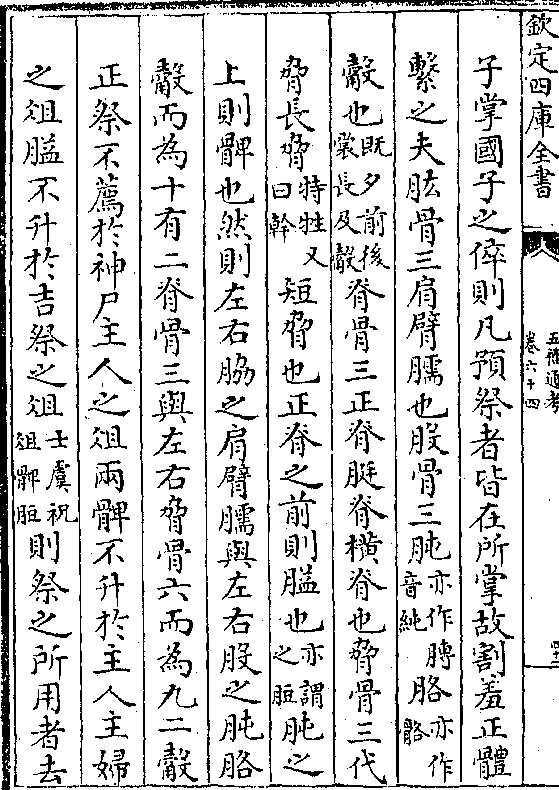 欽定四庫全書
五禮通考
卷六十四
子掌國子之倅則凡預祭者皆在所掌故割羞正體
繫之夫肱骨三肩臂臑也股骨三肫亦作膊音純胳亦作骼
觳也既夕前後裳長及觳脊骨三正脊脡脊横脊也脅骨三代
脅長脅特牲又曰幹短脅也正脊之前則膉也亦謂之脰肫之
上則髀也然則左右胉之肩臂臑與左右股之肫胳
觳而為十有二脊骨三與左右脅骨六而為九二觳
正祭不薦於神尸主人之俎兩髀不升於主人主婦
之俎膉不升於吉祭之俎士虞祝俎髀脰則祭之所用者去